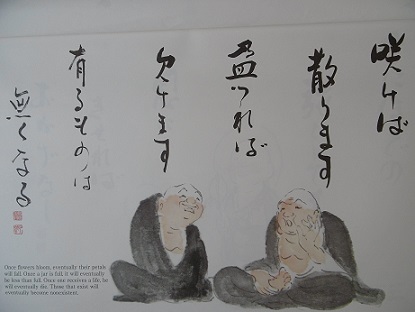 咲けば
散ります
盈つれば
欠けます
有るものは
無くなる
Once flowers bloom, eventually their petals
will fall. Once a jar is full, it will eventually
be less than full. Once one receives a life, he
will eventually die. Those that exist will
eventually become nonexistent.